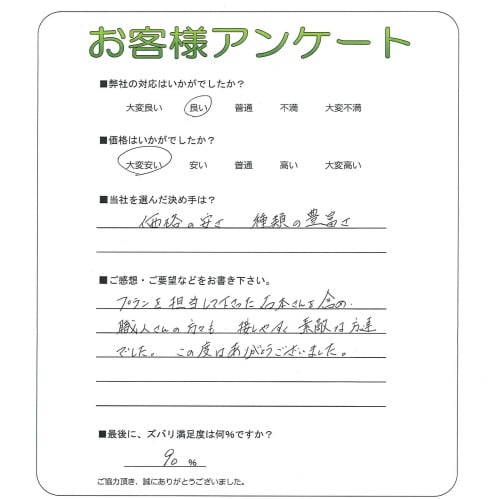 お客様アンケート
■弊社の対応はいかがでしたか?
大変良い 良い 普通 不満 大変不満
■価格はいかがでしたか?
大変安い 安い 普通 高い 大変高い
■当社を選んだ決め手は?
価格の安さ 種類の豊富さ
■ご感想・ご要望などをお書き下さい。
プランを担当して下さった石本さんを含め.
職人さんの方々も 接しやすく 素敵な方達
でした。この度はありがとうございました。
■最後に、ズバリ満足度は何%ですか?
90 %
ご協力頂き、誠にありがとうございました。